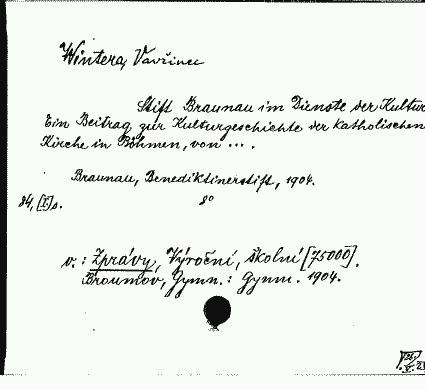 Wintera, Vavřinec
Stift Braunau im Dienste der Kultur
Ein Beitrag zur Kulturgeschichte der katholischen
Kirche in Böhmen, von ... .
Braunau, Benediktinerstift, 1904.
84, [I] s. 8°
v.: Zprávy, Výroční, školní [75000].
Broumov, Gymn.: Gymn. 1904.